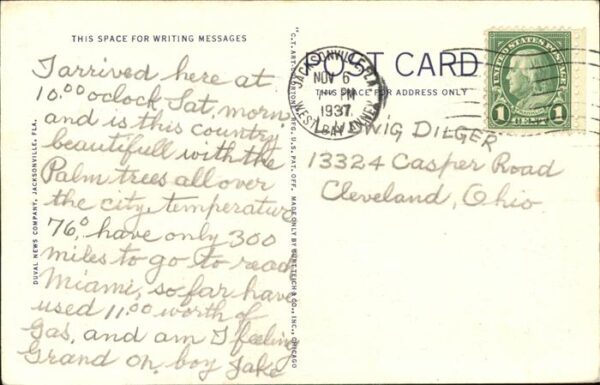 THIS SPACE FOR WRITING MESSAGES
I arrived here at
10.00 oclock Sat, morn
and is this country
beautifull with the
Palm trees all over
the city, temperature
76° have only 300
miles to go to reach
Miami, so far have
used 11.00 worth of
gas, and am I feeling
Grand Oh, boy Jake
DUVAL NEWS COMPANY, JACKSONVILLE, FLA.
"C.T. ART-COLORTONE" REG. U.S. PAT. OFF. MADE ONLY BY CURT TEICH & CO., INC., CHICAGO
POST CARD
THIS SPACE FOR ADDRESS ONLY
JACKSONVILLE, FLA.
NOV 6
PM
1937
WEST BAY ANNEX
UNITED STATES POSTAGE
1 CENT 1
DILGER
13324 Casper Road
Cleveland, Ohio